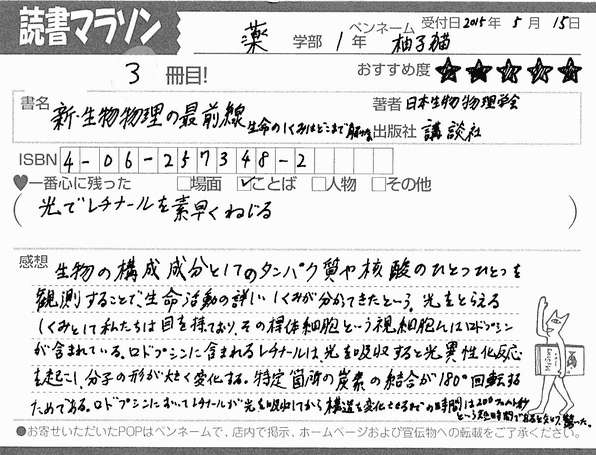 読書マラソン
薬 学部 1 年 ペンネーム 柚子猫 受付日 2015年 5月 15日
3 冊目! おすすめ度 ★★★★★
書名 新・生物物理の最前線 生命のしくみはどこまで解けたか
著者 日本生物物理学会
出版社 講談社
ISBN 4-06-257348-2
♥一番心に残った □場面 ☑ことば □人物 □その他
(光でレチナールを素早くねじる)
感想 生物の構成成分としてのタンパク質や核酸のひとつひとつを
観測することで生命活動の詳しいしくみが分かってきたという。光をとらえる
しくみとして私たちは目を持っており、その桿体細胞という視細胞にはロドプシン
が含まれている。ロドプシンに含まれるレチナールは、光を吸収すると光異性化反応
を起こし、分子の形が大きく変化する。特定箇所の炭素の結合が180°回転する
ためである。ロドプシンにおいてレチナールが光を吸収してから構造を変化させるまでの時間は200フェムト秒
という短時間で驚いた。
●お寄せいただいたPOPはペンネームで、店内で掲示、ホームページおよび宣伝物への転載をご了承ください。